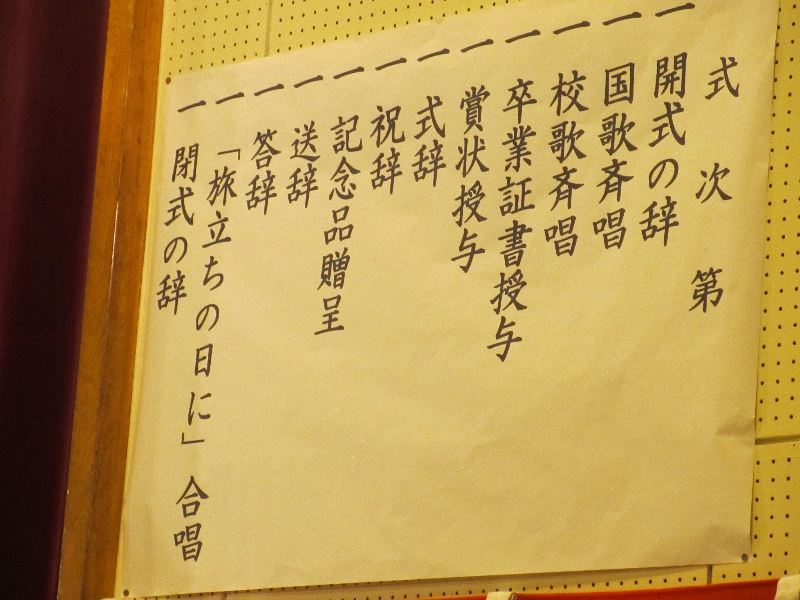 式次第
一 開式の辞
一 国歌斉唱
一 校歌斉唱
一 卒業証書授与
一 賞状授与
一 式辞
一 祝辞
一 記念品贈呈
一 送辞
一 答辞
一 「旅立ちの日に」 合唱
一 閉式の辞